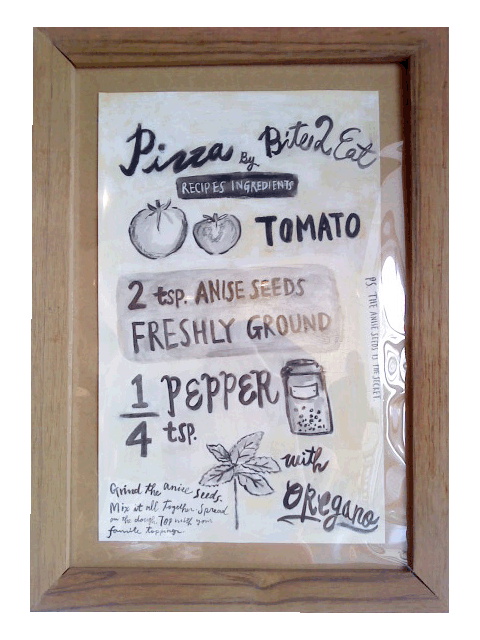 Pizza By Bites2Eat
RECIPES INGREDIENTS
TOMATO
2 tsp. ANISE SEEDS
FRESHLY GROUND
1/4 tsp. PEPPER
with
OREgano
Grind the anise seeds.
Mix it all Together spread
on the dough. Top with your
favorite toppings.
PS. THE ANISE SEEDS IS THE SECRET